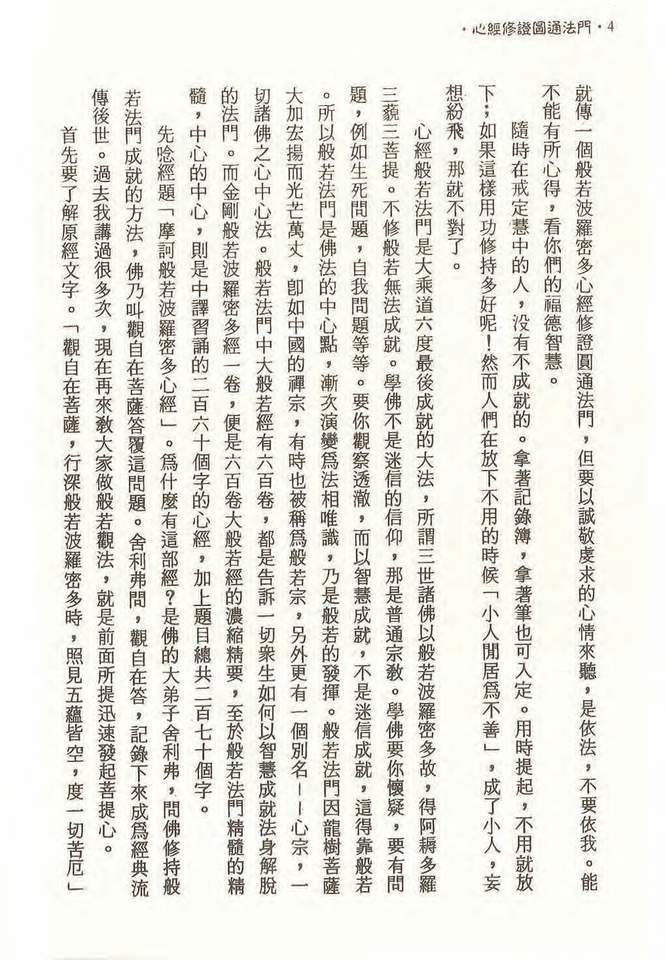 ・心經修證圓通法門・4
就傳一個般若波羅密多心經修證圓通法門，但要以誠敬虔求的心情來聽，是依法，不要依我。能
不能有所心得，看你們的福德智慧。
隨時在戒定慧中的人，没有不成就的。拿著記錄簿，拿著筆也可入定。用時提起，不用就放
下；如果這樣用功修持多好呢！然而人們在放下不用的時候「小人閒居爲不善」，成了小人，妄
想紛飛，那就不對了。
心經般若法門是大乘道六度最後成就的大法，所謂三世諸佛以般若波羅密多故，得阿耨多羅
三藐三菩提。不修般若無法成就。學佛不是迷信的信仰，那是普通宗敎。學佛要你懷疑，要有問
題，例如生死問題，自我問題等等。要你觀察透澈，而以智慧成就，不是迷信成就，這得靠般若
。所以般若法門是佛法的中心點，漸次演變爲法相唯識，乃是般若的發揮。般若法門因龍樹菩薩
大加宏揚而光芒萬丈，卽如中國的禪宗，有時也被稱爲般若宗，另外更有一個別名——心宗，一
切諸佛之心中心法。般若法門中大般若經有六百卷，都是告訴一切衆生如何以智慧成就法身解脫
的法門。而金剛般若波羅密多經一卷，便是六百卷大般若經的濃縮精要，至於般若法門精髓的精
髓，中心的中心，則是中譯習誦的二百六十個字的心經，加上題目總共二百七十個字。
先唸經題「摩訶般若波羅密多心經」。爲什麼有這部經？是佛的大弟子舍利弗，問佛修持般
若法門成就的方法，佛乃叫觀自在菩薩答覆這問題。舍利弗問，觀自在答，記錄下來成爲經典流
傳後世。過去我講過很多次，現在再來敎大家做般若觀法，就是前面所提迅速發起菩提心。
首先要了解原經文字。「觀自在菩薩，行深般若波羅密多時，照見五蘊皆空，度一切苦厄」